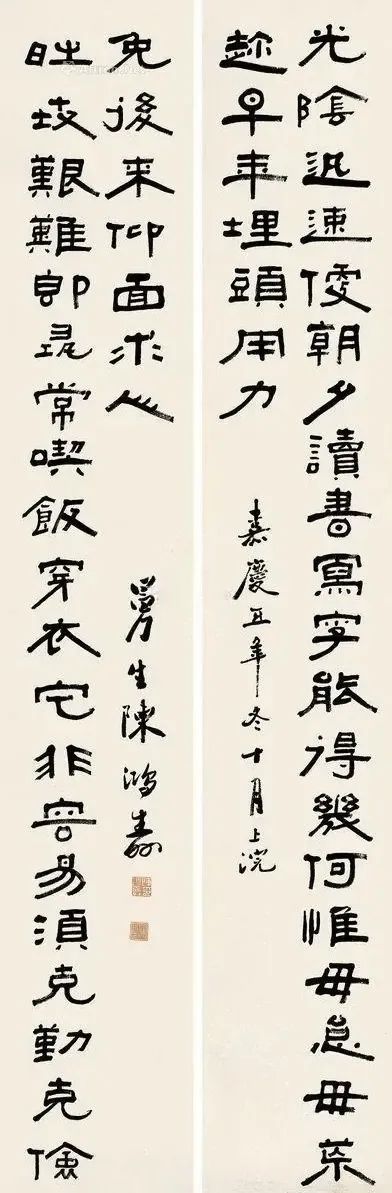 光陰迅速朝夕讀書寫字能得幾何惟毋怠毋荒
趁早年埋頭用力
嘉慶五年冬十月上浣
艱難即常喫飯穿衣它非容易須克勤克儉
免後來仰面求人
曼生陳鴻壽